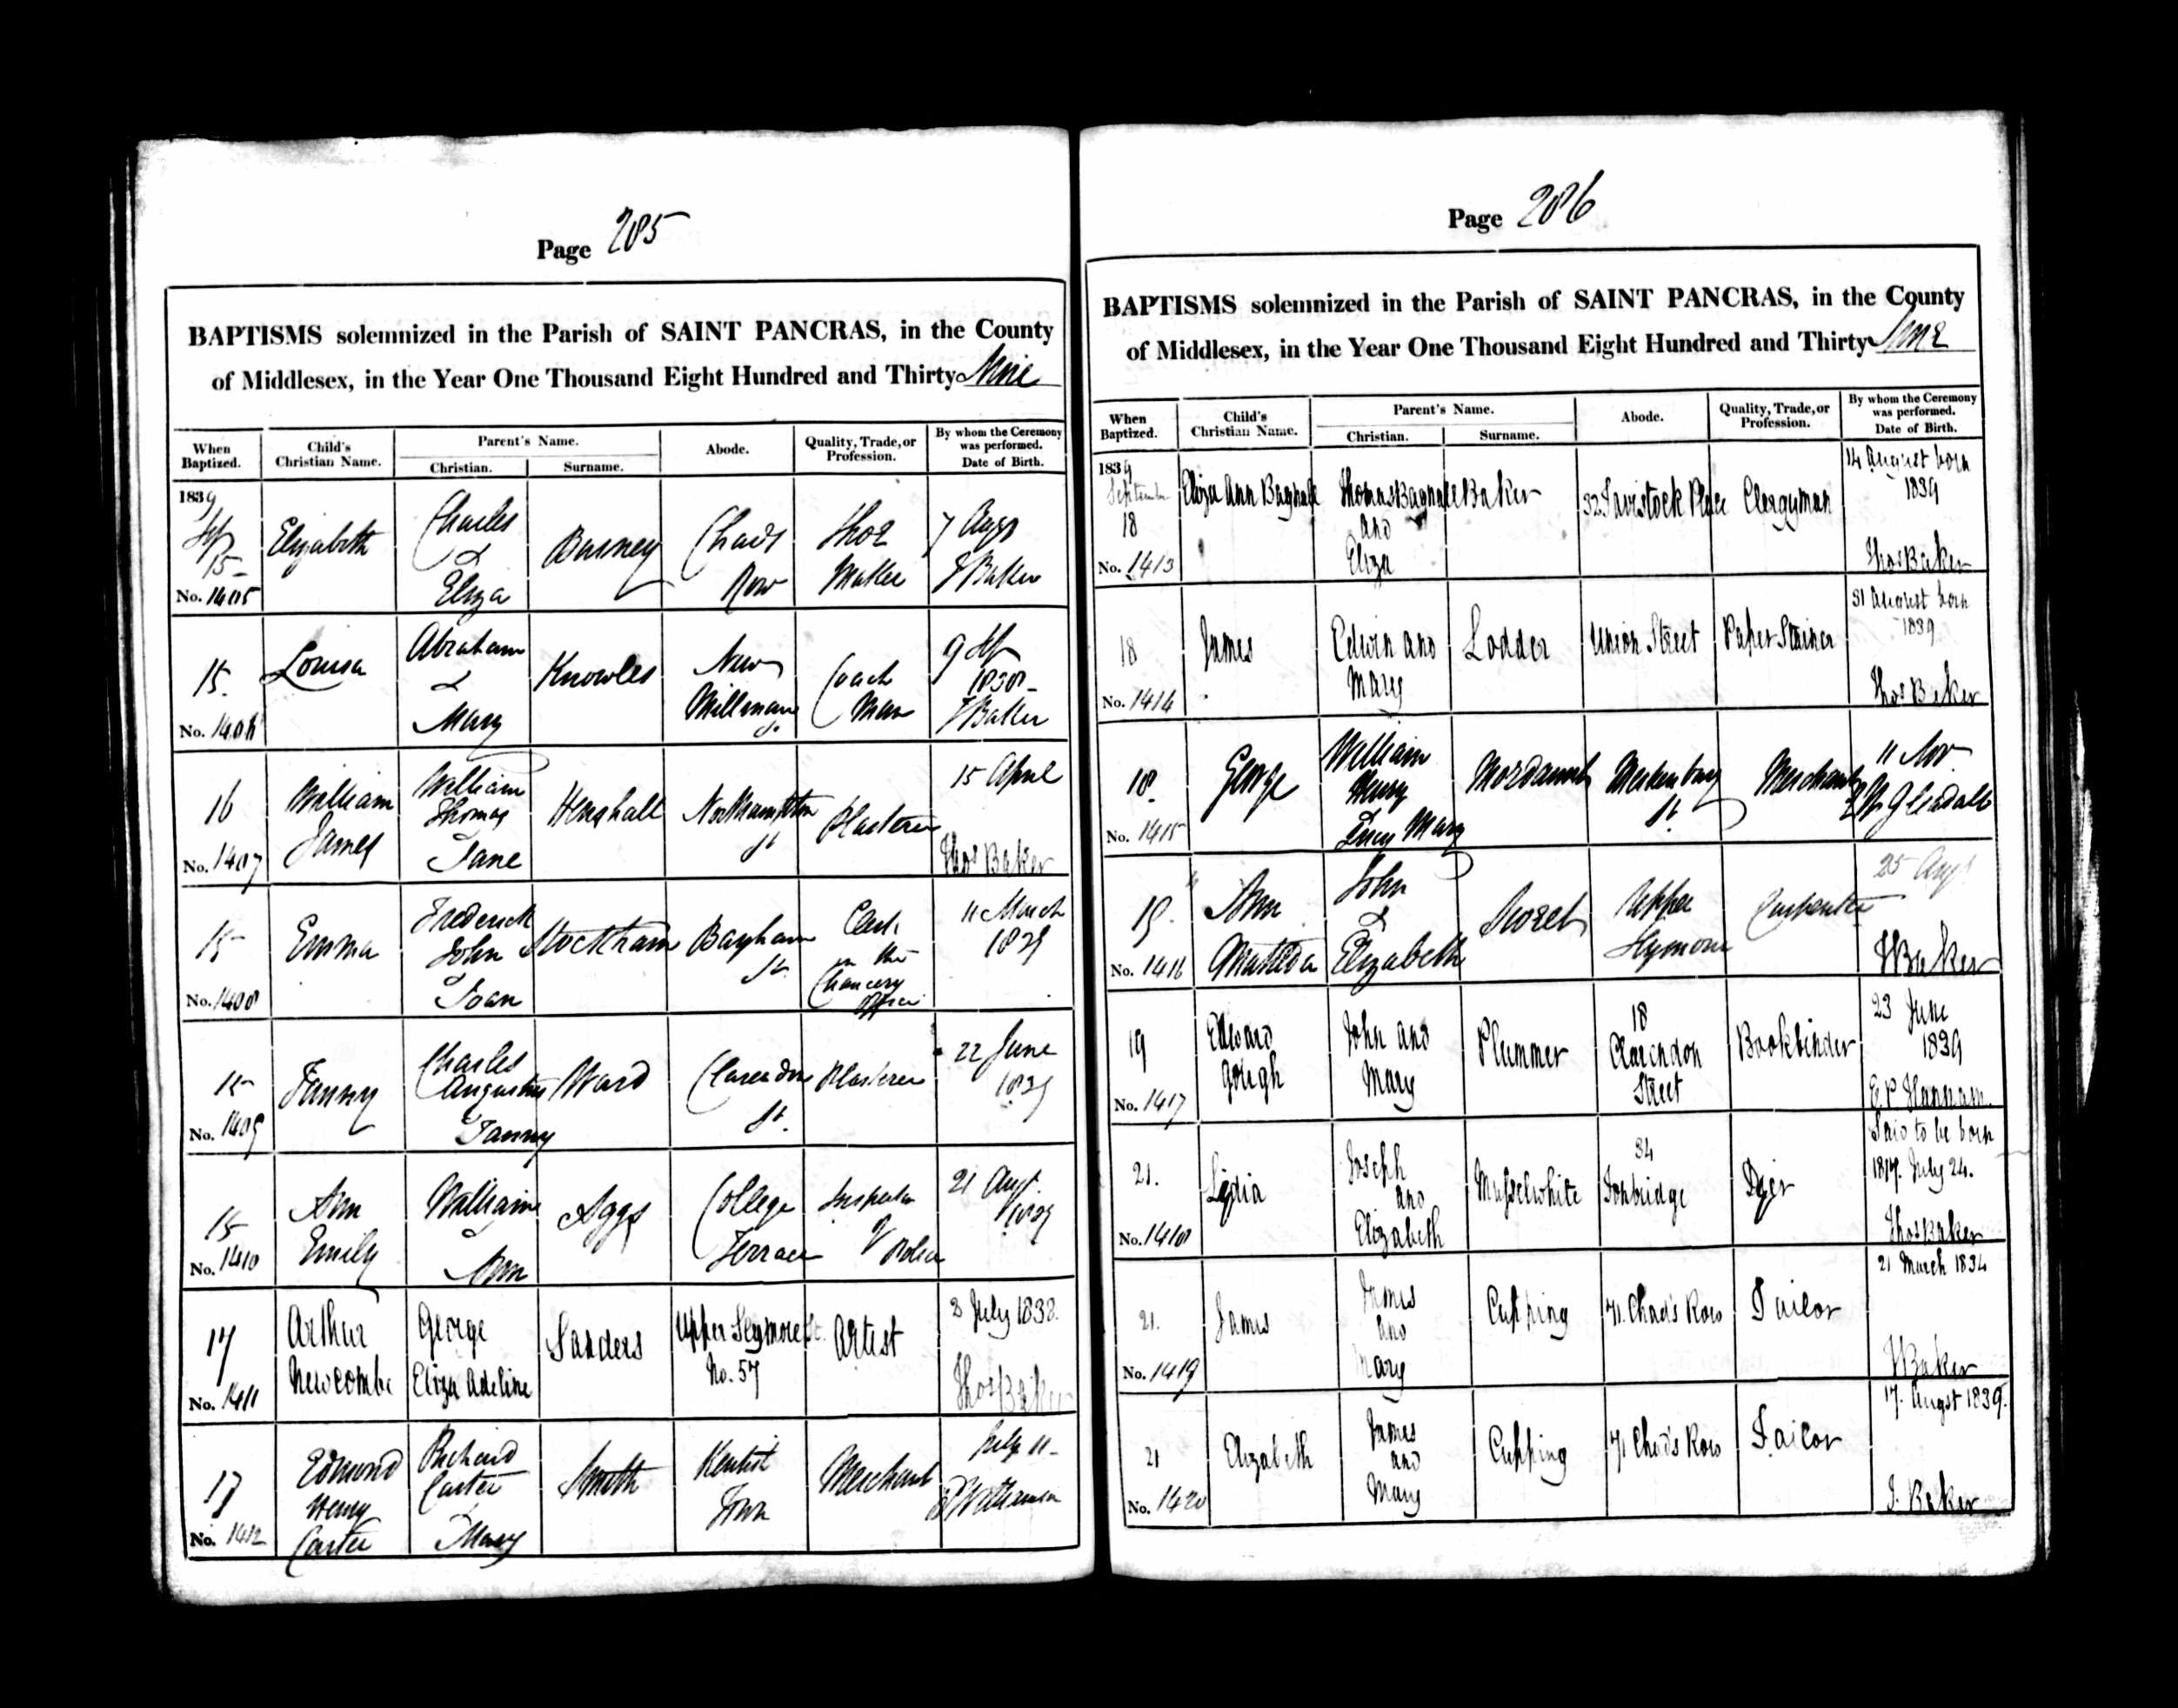 Page 285
BAPTISMS solemnized in the Parish of SAINT PANCRAS, in the County
of Middlesex, in the Year One Thousand Eight Hundred and Thirty Nine
When Baptized.
Child's Christian Name.
Parent's Name.
Christian.
Surname.
Abode.
Quality, Trade, or Profession.
By whom the Ceremony was performed.
Date of Birth.
1839
Sep
15
No. 1405
Elizabeth
Charles
&
Eliza
Burney
Chads
Row
Shoe
Maker
7 Augt
TBaker
15.
No. 1406
Louisa
Abraham
&
Mary
Knowles
New
Millman
St.
Coach
Man
9 Sep
1838
TBaker
16
No. 1407
William
James
William
Thomas
Jane
Henshall
Northampton
St
Plasterer
15 April
Thos Baker
15
No. 1408
Emma
Frederick
John
Joan
Stockham
Bayham
St.
Clerk
in the
Chancery
Office
11 March
1839
15
No. 1409
Fanny
Charles
Augustus
Fanny
Ward
Clarendon
St.
Plasterer
22 June
1839
15
No. 1410
Ann
Emily
William
&
Ann
Aggs
College
Terrace
Inspector
of
Police
21 Augt
1839
17
No. 1411
Arthur
Newcombe
George
Eliza Adeline
Sanders
Upper Seymore St.
No. 57
Artist
3 July 1838.
Thos Baker
17
No. 1412
Edmond
Henry
Carter
Richard
Carter
&
Mary
Smith
Kentish
Town
Merchant
July 11
Page 286
BAPTISMS solemnized in the Parish of SAINT PANCRAS, in the County
of Middlesex, in the Year One Thousand Eight Hundred and Thirty Nine
When Baptized.
Child's Christian Name.
Parent's Name.
Christian.
Surname.
Abode.
Quality, Trade, or Profession.
By whom the Ceremony was performed.
Date of Birth.
1839
September
18
No. 1413
Eliza Ann Bagnall
Thomas Bagnall
and
Eliza
Baker
32 Tavistock Place
Clergyman
14 August born
1839
Thos Baker
18
No. 1414
James
Edwin and
Mary
Lodder
Union Street
Paper Stainer
31 August born
1839
Thos Baker
18.
No. 1415
George
William
Henry
Lucy Mary
Mordaunt
Mecklenburg
St.
Merchant
11 Nov
19.
No. 1416
Ann
Matilda
John
&
Elizabeth
Upper
Seymour
Carpenter
25 Augt
TBaker
19
No. 1417
Edward
Gough
John and
Mary
Plummer
18
Clarendon
Street
Bookbinder
23 June
1839
E P Hannam.
21.
No. 1418
Lydia
Joseph
and
Elizabeth
Musselwhite
34
Tonbridge
Dyer
Said to be born
1817. July 24.
Thos Baker
21.
No. 1419
James
James
and
Mary
Cupping
71. Chad's Row
Tailor
21 March 1834
TBaker
21
No. 1420
Elizabeth
James
and
Mary
Cupping
71 Chad's Row
Tailor
17. Augst 1839.
T. Baker